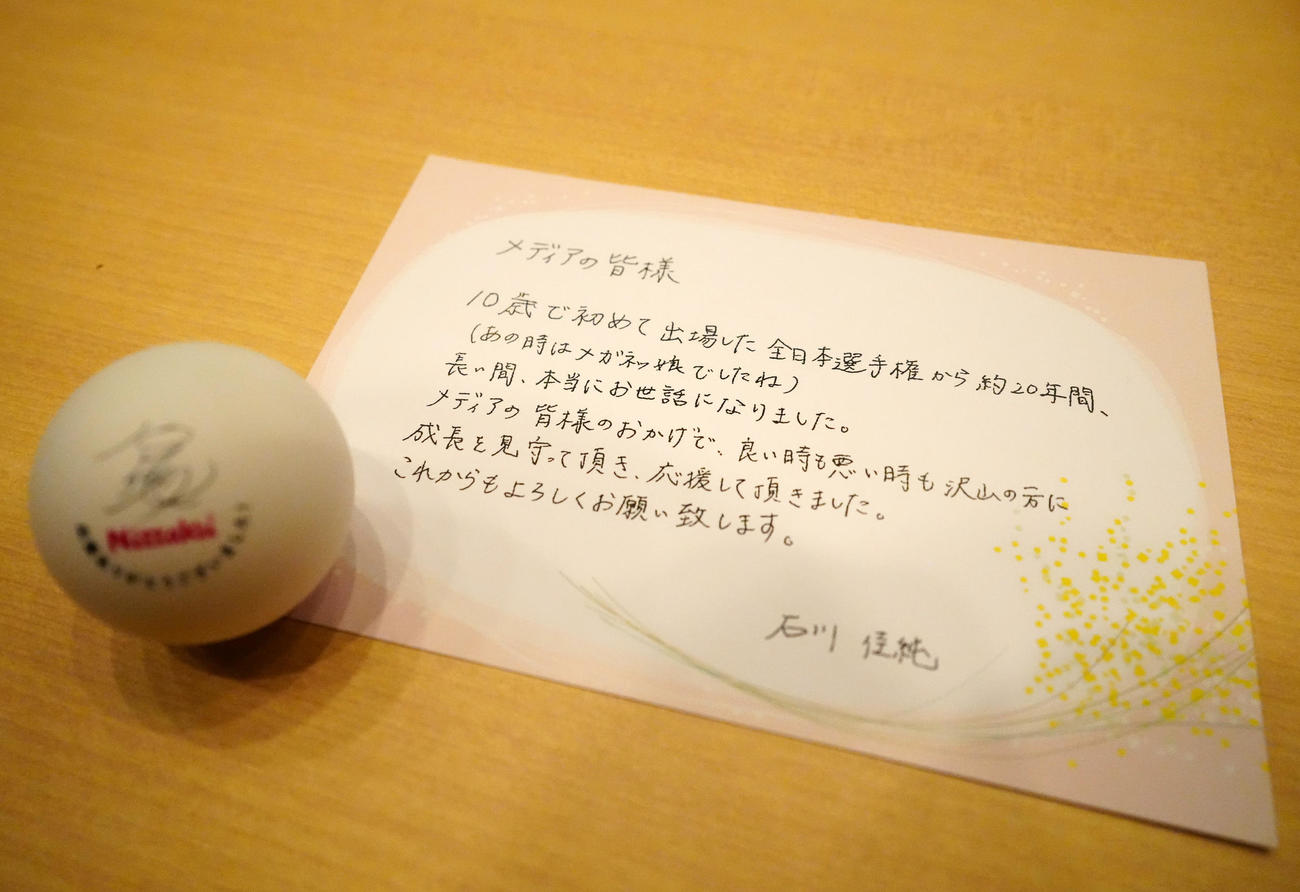 メディアの皆様
10歳で初めて出場した全日本選手権から約20年間、
(あの時はメガネッ娘でしたね)
長い間、本当にお世話になりました。
メディアの皆様のおかげで、良い時も悪い時も沢山の方に
成長を見守って頂き、応援して頂きました。
これからもよろしくお願い致します。
石川 佳純
Nittaku